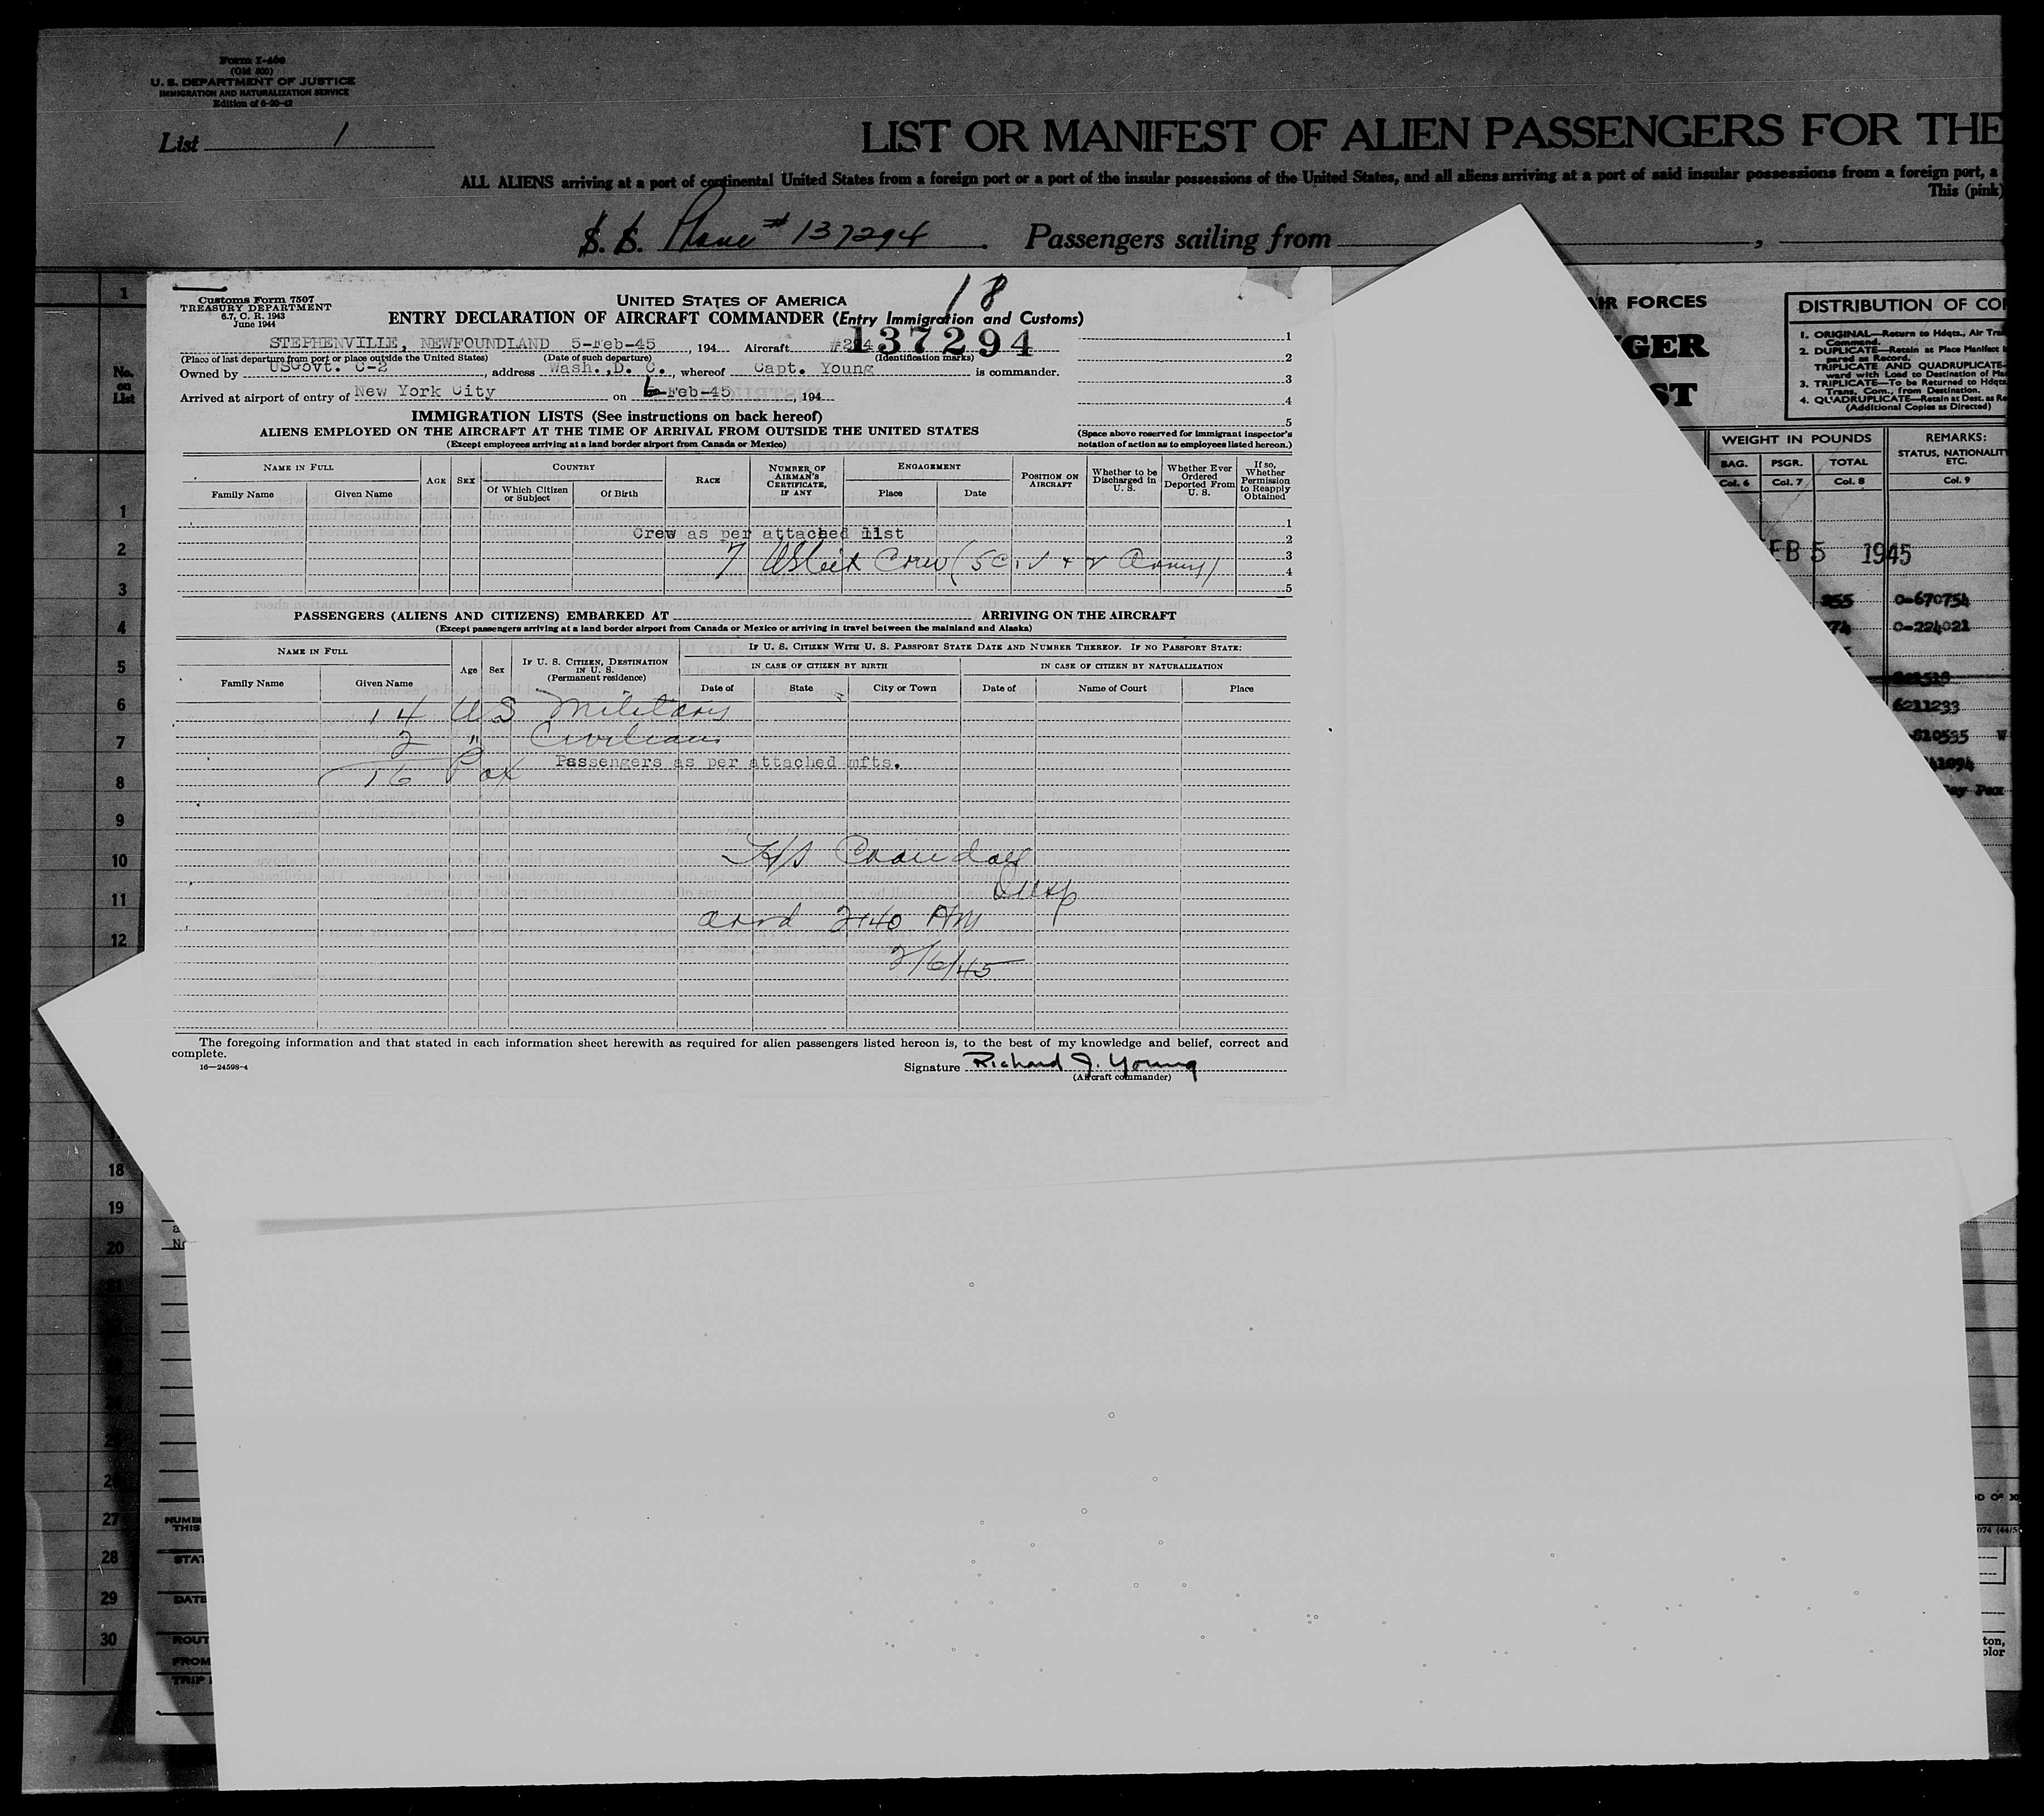 Form I-460
(Old 500)
U. S. DEPARTMENT OF JUSTICE
IMMIGRATION AND NATURALIZATION SERVICE
Edition of 6-20-42
List 1
LIST OR MANIFEST OF ALIEN PASSENGERS FOR THE
ALL ALIENS arriving at a port of continental United States from a foreign port or a port of the insular possessions of the United States, and all aliens arriving at a port of said insular possessions from a foreign port, a
This (pink)
S. S. Plane # 137294 . Passengers sailing from ,
No. on List
Customs Form 7507
TREASURY DEPARTMENT
6.7, C. R. 1943
June 1944
UNITED STATES OF AMERICA
18
ENTRY DECLARATION OF AIRCRAFT COMMANDER (Entry Immigration and Customs)
137294
STEPHENVILLE, NEWFOUNDLAND 5-Feb-45 , 194 Aircraft
(Place of last departure from port or place outside the United States) (Date of such departure) (Identification marks)
Owned by USGovt. C-2 , address Wash.,D. C. , whereof Capt. Young is commander.
Arrived at airport of entry of New York City on 6-Feb-45 , 194
IMMIGRATION LISTS (See instructions on back hereof)
ALIENS EMPLOYED ON THE AIRCRAFT AT THE TIME OF ARRIVAL FROM OUTSIDE THE UNITED STATES
(Except employees arriving at a land border airport from Canada or Mexico)
1
2
3
4
5
(Space above reserved for immigrant inspector's notation of action as to employees listed hereon.)
NAME IN FULL
Family Name Given Name
AGE SEX
COUNTRY
Of Which Citizen or Subject Of Birth
RACE
NUMBER OF AIRMAN'S CERTIFICATE, IF ANY
ENGAGEMENT
Place Date
POSITION ON AIRCRAFT
Whether to be Discharged in U. S.
Whether Ever Ordered Deported From U. S.
If so, Whether Permission to Reapply Obtained
1
2
3
4
5
Crew as per attached list
7 US Cit Crew (5 Civ + 2 Army)
PASSENGERS (ALIENS AND CITIZENS) EMBARKED AT ARRIVING ON THE AIRCRAFT
(Except passengers arriving at a land border airport from Canada or Mexico or arriving in travel between the mainland and Alaska)
NAME IN FULL
Family Name Given Name
Age Sex
IF U. S. CITIZEN, DESTINATION IN U. S.
(Permanent residence)
IF U. S. CITIZEN WITH U. S. PASSPORT STATE DATE AND NUMBER THEREOF. IF NO PASSPORT STATE:
IN CASE OF CITIZEN BY BIRTH IN CASE OF CITIZEN BY NATURALIZATION
Date of State City or Town Date of Name of Court Place
14 US Military
2 " Civilians
16 Pax Passengers as per attached mfts.
Crandall
Insp
arrd 2:40 AM
2/6/45
The foregoing information and that stated in each information sheet herewith as required for alien passengers listed hereon is, to the best of my knowledge and belief, correct and
complete.
16—24598-4
Signature Richard J. Young
(Aircraft commander)
1
2
3
4
5
6
7
8
9
10
11
12
18
19
20
27
28
29
30
NUMB
THIS
STAT
DATE
ROUT
FROM
TRIP
IR FORCES
GER
ST
DISTRIBUTION OF CO
1. ORIGINAL—Return to Hdqts., Air Tra
Command.
2. DUPLICATE—Retain at Place Manifest
pared as Record.
TRIPLICATE AND QUADRUPLICATE—
ward with Load to Destination of Ma
3. TRIPLICATE—To be Returned to Hdqts.
Trans. Com., from Destination.
4. QUADRUPLICATE—Retain at Dest. as Re
(Additional Copies as Directed)
WEIGHT IN POUNDS
BAG. PSGR. TOTAL
Col. 6 Col. 7 Col. 8
REMARKS:
STATUS, NATIONALITY
ETC.
Col. 9
EB 5 1945
0-670754
0-224021
6211233